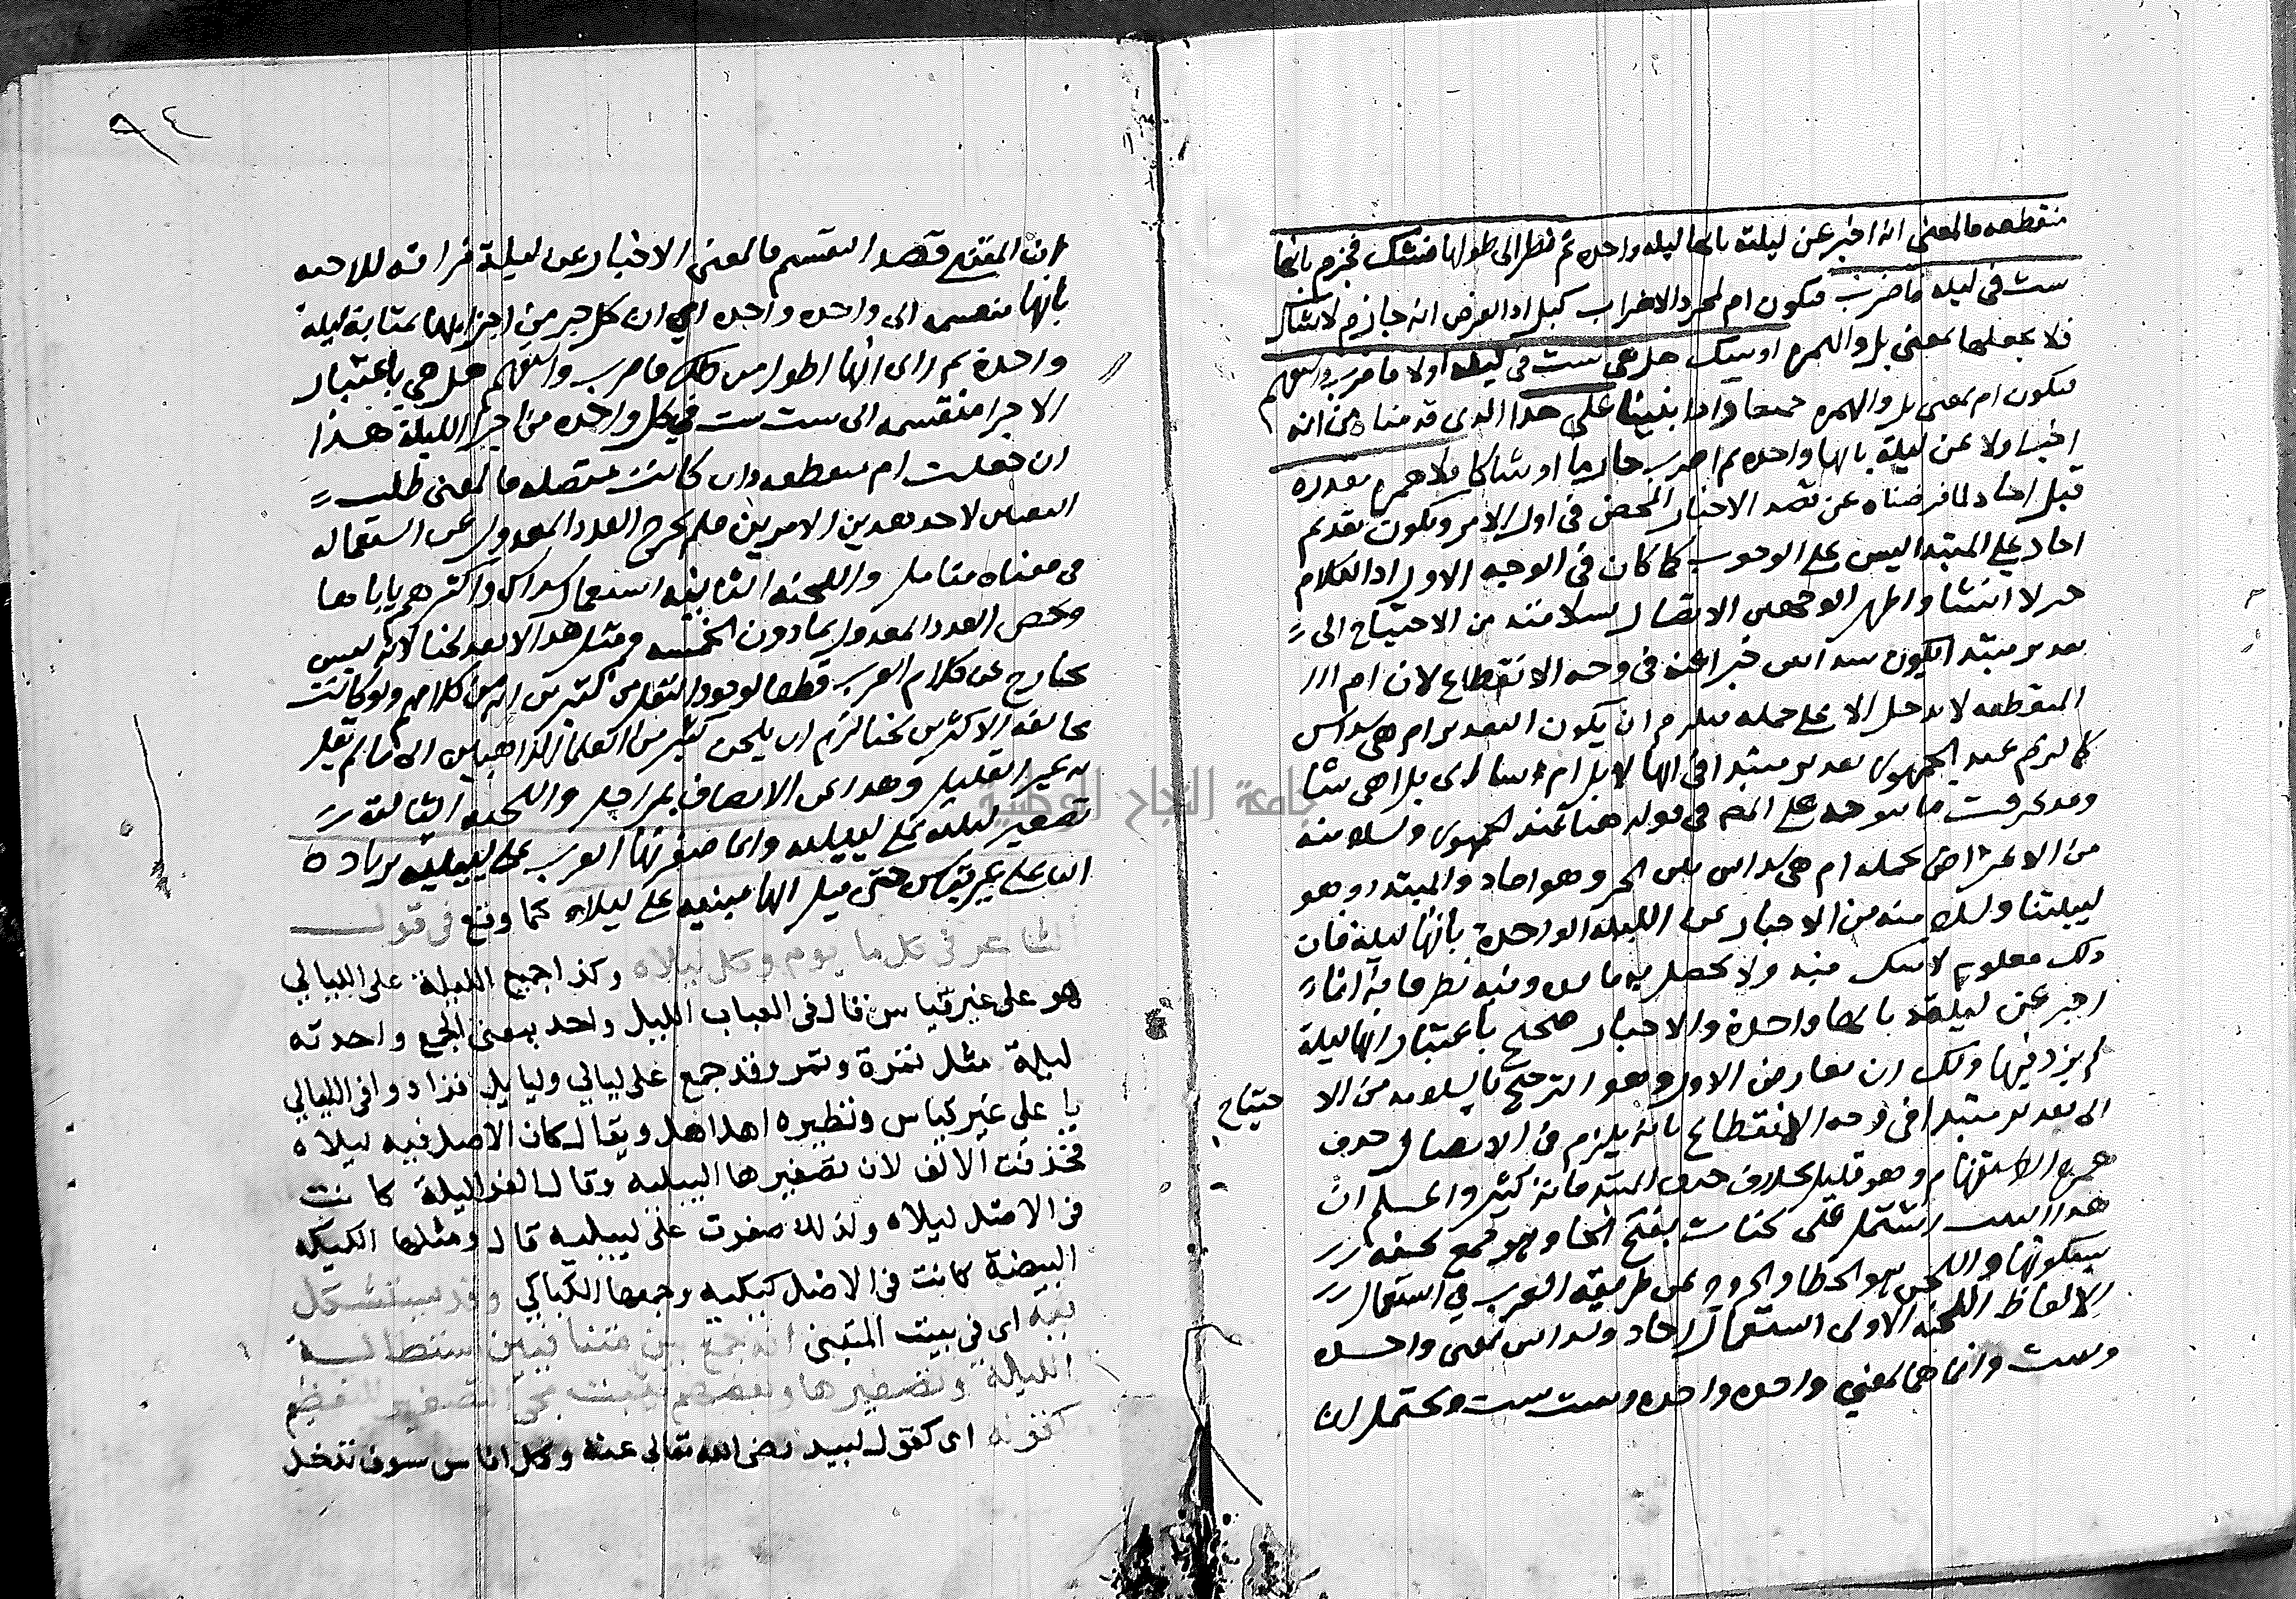 منقطعه فالمعنى انه اخبر عن ليلته بانها ليله واحده ثم نظر الى طولها فشك فجزم بانها
ست فى ليله فاضرب فتكون ام لمجرد الاضراب كبل اذ الغرض انه جازم لا شاك
فلا يجعلها بمعنى بل والهمزه او شك هل هى ست فى ليله اولا فاضرب واستفهم
فتكون ام بمعنى بل والهمزه جميعا واذا بنينا على هذا الذى قدمناه من انه
اخبر اولا عن ليلته بانها واحده ثم اضرب جازما او شاكا فلا همزه مقدره
قبل احاد لما فرضناه عن قصد الاخبار المحض فى اول الامر ويكون تقديم
احاد على المبتدا ليس على الوجوب كما كان فى الوجه الاول اذ الكلام
خبر لا انشا واظهر الوجهين الاتصال لسلامته من الاحتياج الى
تقدير مبتدا يكون سداس خبرا عنه فى وجه الانقطاع لان ام
المنقطعه لا تدخل الا على جمله فيلزم ان يكون التقدير ام هى سداس
كما لزم عند الجمهور تقدير مبتدا فى انها لابل ام شا اى بل اهى شا
وقد عرفت ما يتوجه على المص فى قوله هنا عند الجمهور ولسلامته
من الاعتراض بجمله ام هى سداس بين الخبر وهو احاد والمبتدا وهو
لييلتنا ولسلامته من الاخبار عن الليله الواحدة بانها ليلة فان
ذلك معلوم لا شك فيه ولا يحصل به فايده وفيه نظر فانه انما
اخبر عن ليلته بانها واحدة والاخبار صحيح باعتبار انها ليلة
لم يزد فيها ولك ان تعارض الاول وهو الترجيح بالسلامه من الا حتياج
الى تقدير مبتدا فى وجه الانقطاع بانه يلزم فى الاتصال حذف
همزه الاستفهام وهو قليل بخلاف حذف المبتدا فانه كثير واعلم ان
هذا البيت اشتمل على لحنات بفتح الحا وهو جمع لحنه
بسكونها واللحن هو الخطا والخروج عن طريقه العرب فى استعمال
الالفاظ اللحنه الاولى استعمال احاد وسداس بمعنى واحده
وست وانما هما بمعنى واحده واحده وست ست ويحتمل ان
٩٤
ان المتنبى قصد التقسيم فالمعنى الاخبار عن ليلة فراقه للاحبه
بانها منقسمه الى واحده واحده اى ان كل جزء من اجزايها بمثابة ليلة
واحدة ثم راى انها اطول من ذلك فاضرب واستفهم هل هى باعتبار
الاجزا منقسمه الى ست ست فى كل واحده من اجزا الليلة هذا
ان جعلت ام منقطعه وان كانت متصله فالمعنى طلب
التعيين لاحد هذين الامرين فلم يخرج العدد المعدول عن استعماله
فى معناه فتامل واللحنه الثانيه استعمال سداس واكثرهم ياباها
ويخص العدد المعدول بما دون الخمسه ومثل هذا لا يعد لحنا لانه ليس
بخارج عن كلام العرب قطعا لوجود النقل من كثيرين انه من كلامهم ولو كانت
مخالفه الاكثرين لحنا لزم ان يلحن كثير من العلما الذاهبين الى ما لم يقل
به غير القليل وهذا عن الانصاف بمراحل واللحنه الثالثة
تصغير ليله على لييله وانما صغرتها العرب على لييليه بزياده
اليا على غير قياس حتى قيل انها مبنيه على ليلاه كما وقع فى قول
الشاعر فى كل ما يوم وكل ليلاه وكذا جمع الليلة على الليالي
هو على غير قياس قال فى العباب الليل واحد بمعنى الجمع واحدته
ليلة مثل تمرة وتمر وقد جمع على ليالي وليايل فزادوا فى الليالي
يا على غير قياس ونظيره اهل واهال ويقال كان الاصل فيه ليلاه
فحذفت الالف لان تصغيرها لييليه وقال الفرا ليلة كانت
فى الاصل ليلاه ولذلك صغرت على لييليه قال ومثلها الكيكه
البيضة كانت فى الاصل كيكيه وجمعها الكياكي وقد يستشكل
فيه اى فى بيت المتنبى انه جمع بين متنافيين استطالة
الليلة وتصغيرها وبعضهم يثبت مجى التصغير للتعظيم
كقوله اى كقول لبيد رضى الله تعالى عنه وكل اناس سوف تدخل
جامعة النجاح الوطنية